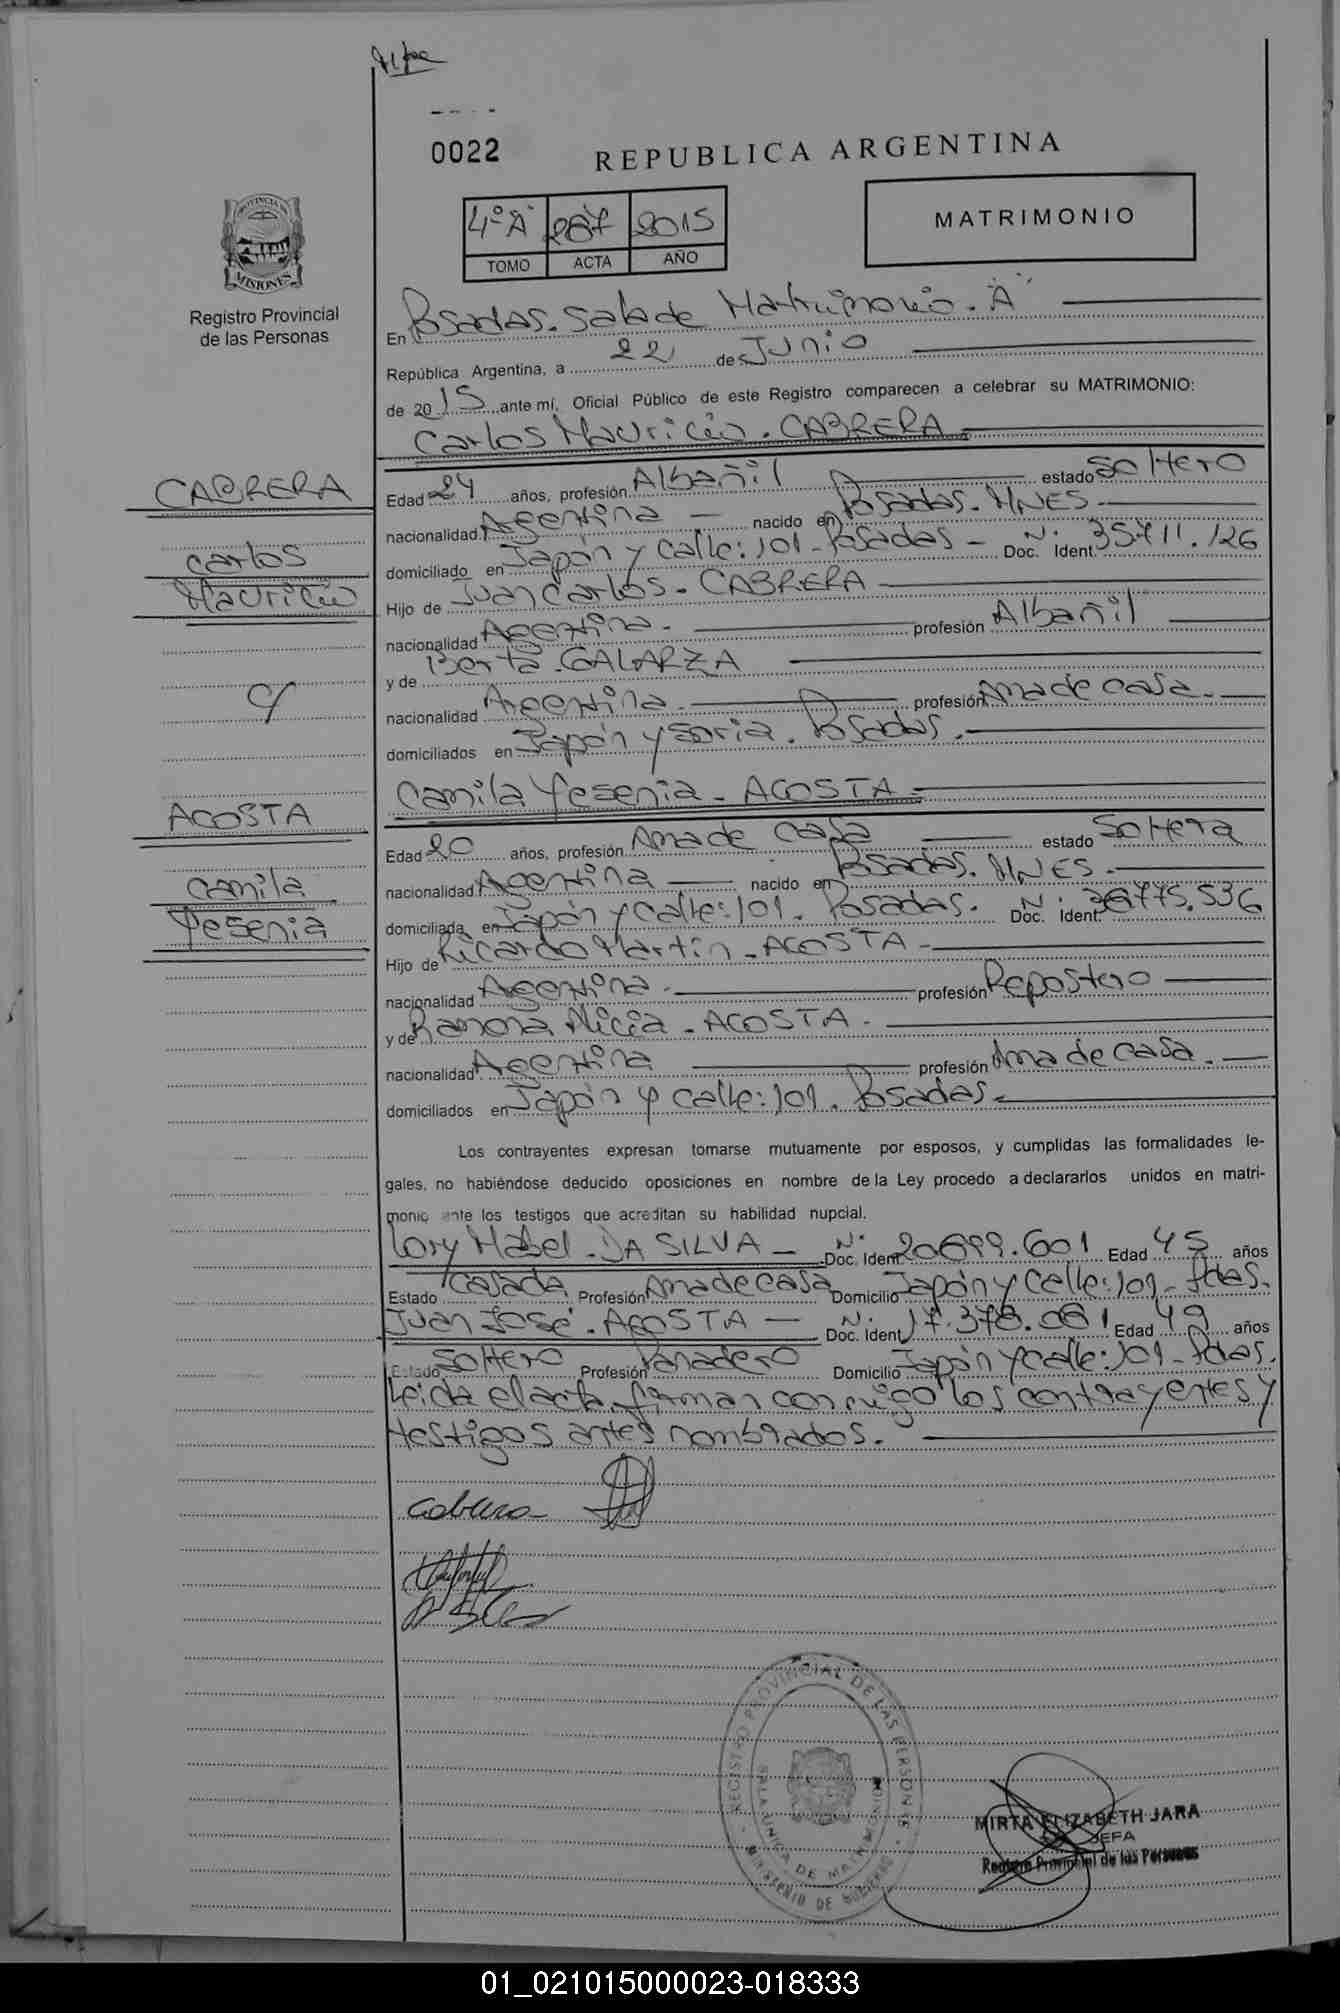 0022
REPUBLICA ARGENTINA
4º "A" 287 2015
TOMO ACTA AÑO
MATRIMONIO
PROVINCIA DE
MISIONES
Registro Provincial
de las Personas
En Posadas. Sala de Matrimonio. "A"
República Argentina, a 22 de Junio
de 2015 ante mí, Oficial Público de este Registro comparecen a celebrar su MATRIMONIO:
Carlos Mauricio. CABRERA
CABRERA
Carlos
Mauricio
c/
ACOSTA
Camila
Yesenia
Edad 24 años, profesión Albañil estado Soltero
nacionalidad Argentina nacido en Posadas. MNES
domiciliado en Japón y calle: 101 - Posadas - Doc. Ident. Nº 35.711.126
Hijo de Juan Carlos. CABRERA
nacionalidad Argentina. profesión Albañil
y de Berta GALARZA
nacionalidad Argentina. profesión Ama de casa.
domiciliados en Japón y Soria. Posadas.
Camila Yesenia - ACOSTA
Edad 20 años, profesión Ama de casa estado Soltera
nacionalidad Argentina nacido en Posadas. MNES.
domiciliada en Japón y calle: 101. Posadas. Doc. Ident. Nº 36775.536
Hijo de Ricardo Martín - ACOSTA
nacionalidad Argentina. profesión Repostero
y de Ramona Alicia - ACOSTA.
nacionalidad Argentina profesión Ama de casa.
domiciliados en Japón y calle: 101. Posadas.
Los contrayentes expresan tomarse mutuamente por esposos, y cumplidas las formalidades le-
gales, no habiéndose deducido oposiciones en nombre de la Ley procedo a declararlos unidos en matri-
monio ante los testigos que acreditan su habilidad nupcial.
Lory Mabel. DA SILVA - Doc. Ident. Nº 20699.601 Edad 45 años
Estado Casada Profesión Ama de casa Domicilio Japón y Calle: 101 - Pdas.
Juan José. ACOSTA - Doc. Ident. Nº 17.378.061 Edad 49 años
Estado Soltero Profesión Panadero Domicilio Japón y calle: 101 - Pdas.
Leida el acta, firman conmigo los contrayentes y
testigos antes nombrados.
Cabrera
REGISTRO PROVINCIAL DE LAS PERSONAS
SALA UNICA DE MATRIMONIO
MINISTERIO DE GOBIERNO
MIRTA ELIZABETH JARA
JEFA
Registro Provincial de las Personas
01_021015000023-018333